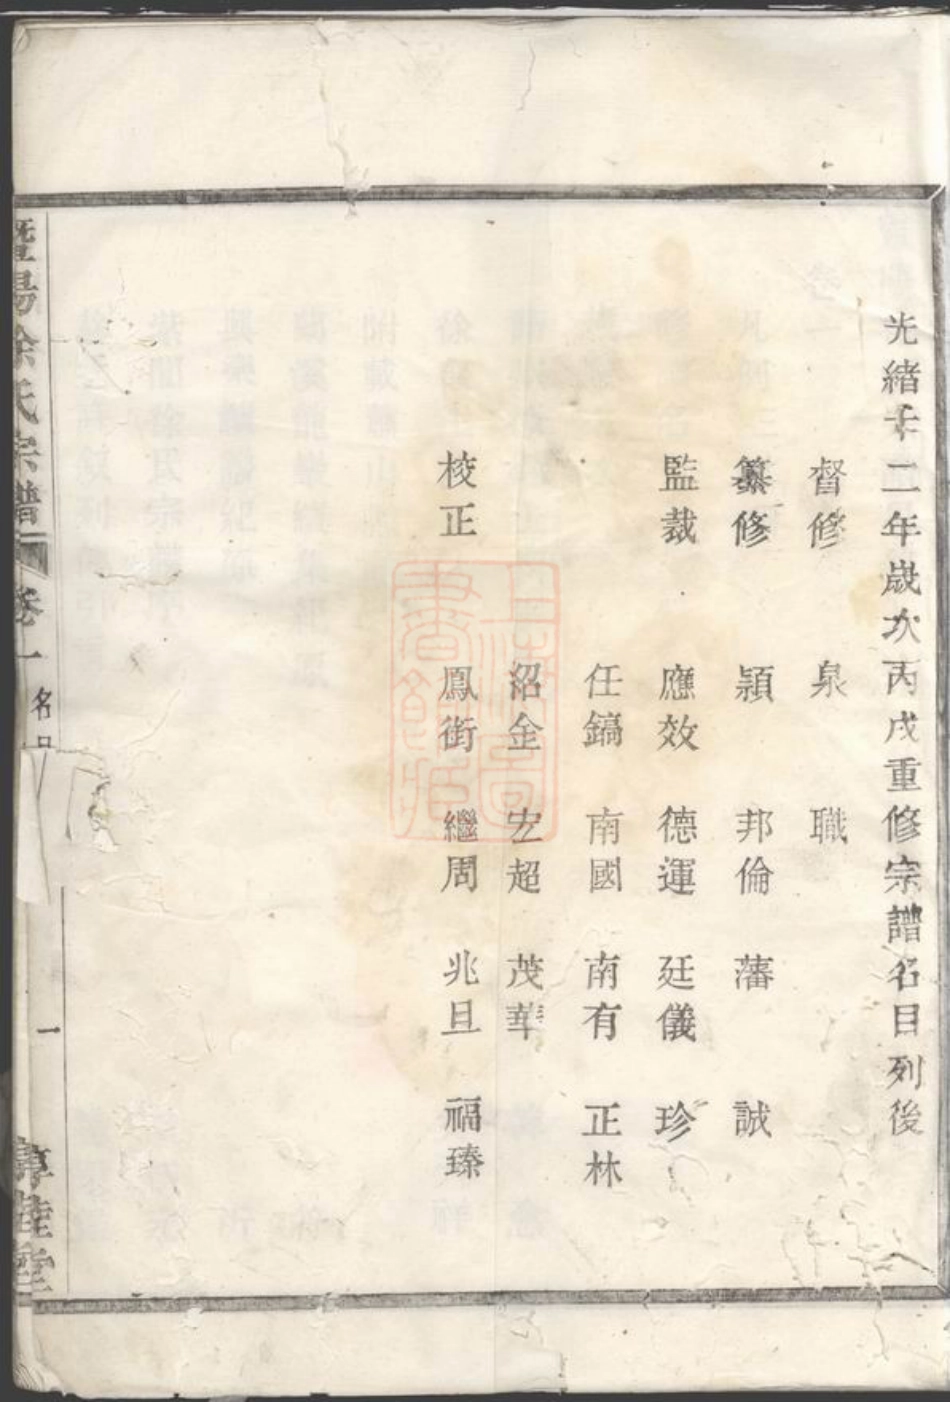 光緒十二年歲次丙戌重修宗譜名目列後
督修 泉 職
纂修 頴 邦倫 藩 誠
監裁 應效 德運 廷儀 珍
任鎬 南國 南有 正林
沼金 宏超 茂華
校正 鳳街 繼周 兆旦 福臻
暨陽徐氏宗譜 卷一 名目 一 惇睦堂
上海圖書館藏